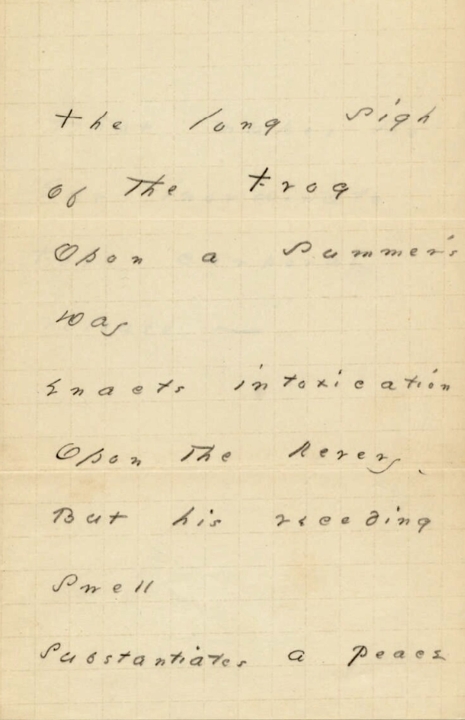 The long sigh
Of the Frog
Upon a Summer's
Day
Enacts intoxication
Upon the Revery.
But his receding
Swell
Substantiates a Peace